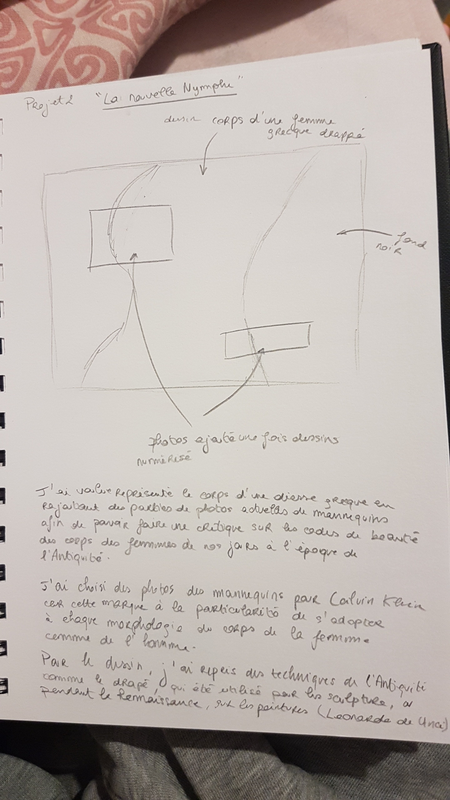 Projet 2 "La nouvelle Nymphe"
dessin corps d'une femme
grecque drappé
fond
noir
photos ajouté une fois dessins
numérisé
J'ai voulu représenté le corps d'une déesse grecque en
rajoutant des parties de photos actuelles de mannequins
afin de pouvoir faire une critique sur les codes de beauté
des corps des femmes de nos jours à l'époque de
l'Antiquité.
J'ai choisi des photos des mannequins pour Calvin Klein
car cette marque à la particularité de s'adapter
à chaque morphologie du corps de la femme
comme de l'homme.
Pour le dessin, j'ai repris des techniques de l'Antiquité
comme le drapé, qui été utilisé pour les sculpture, ou
pendant la Renaissance, sur les peintures (Leonardo de Vinci)